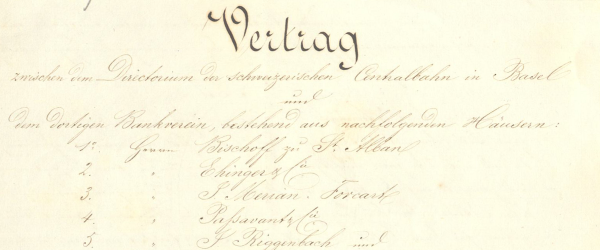 Vertrag
zwischen dem Directorium der schweizerischen Centralbahn in Basel
und
dem dortigen Bankverein, bestehend aus nachfolgenden Häusern:
1º. Herrn Bischoff zu St. Alban
2. " Ehinger & Cie
3. " J. Merian-Forcart
4. " Paſsavant & Cie
5. " J. Riggenbach und